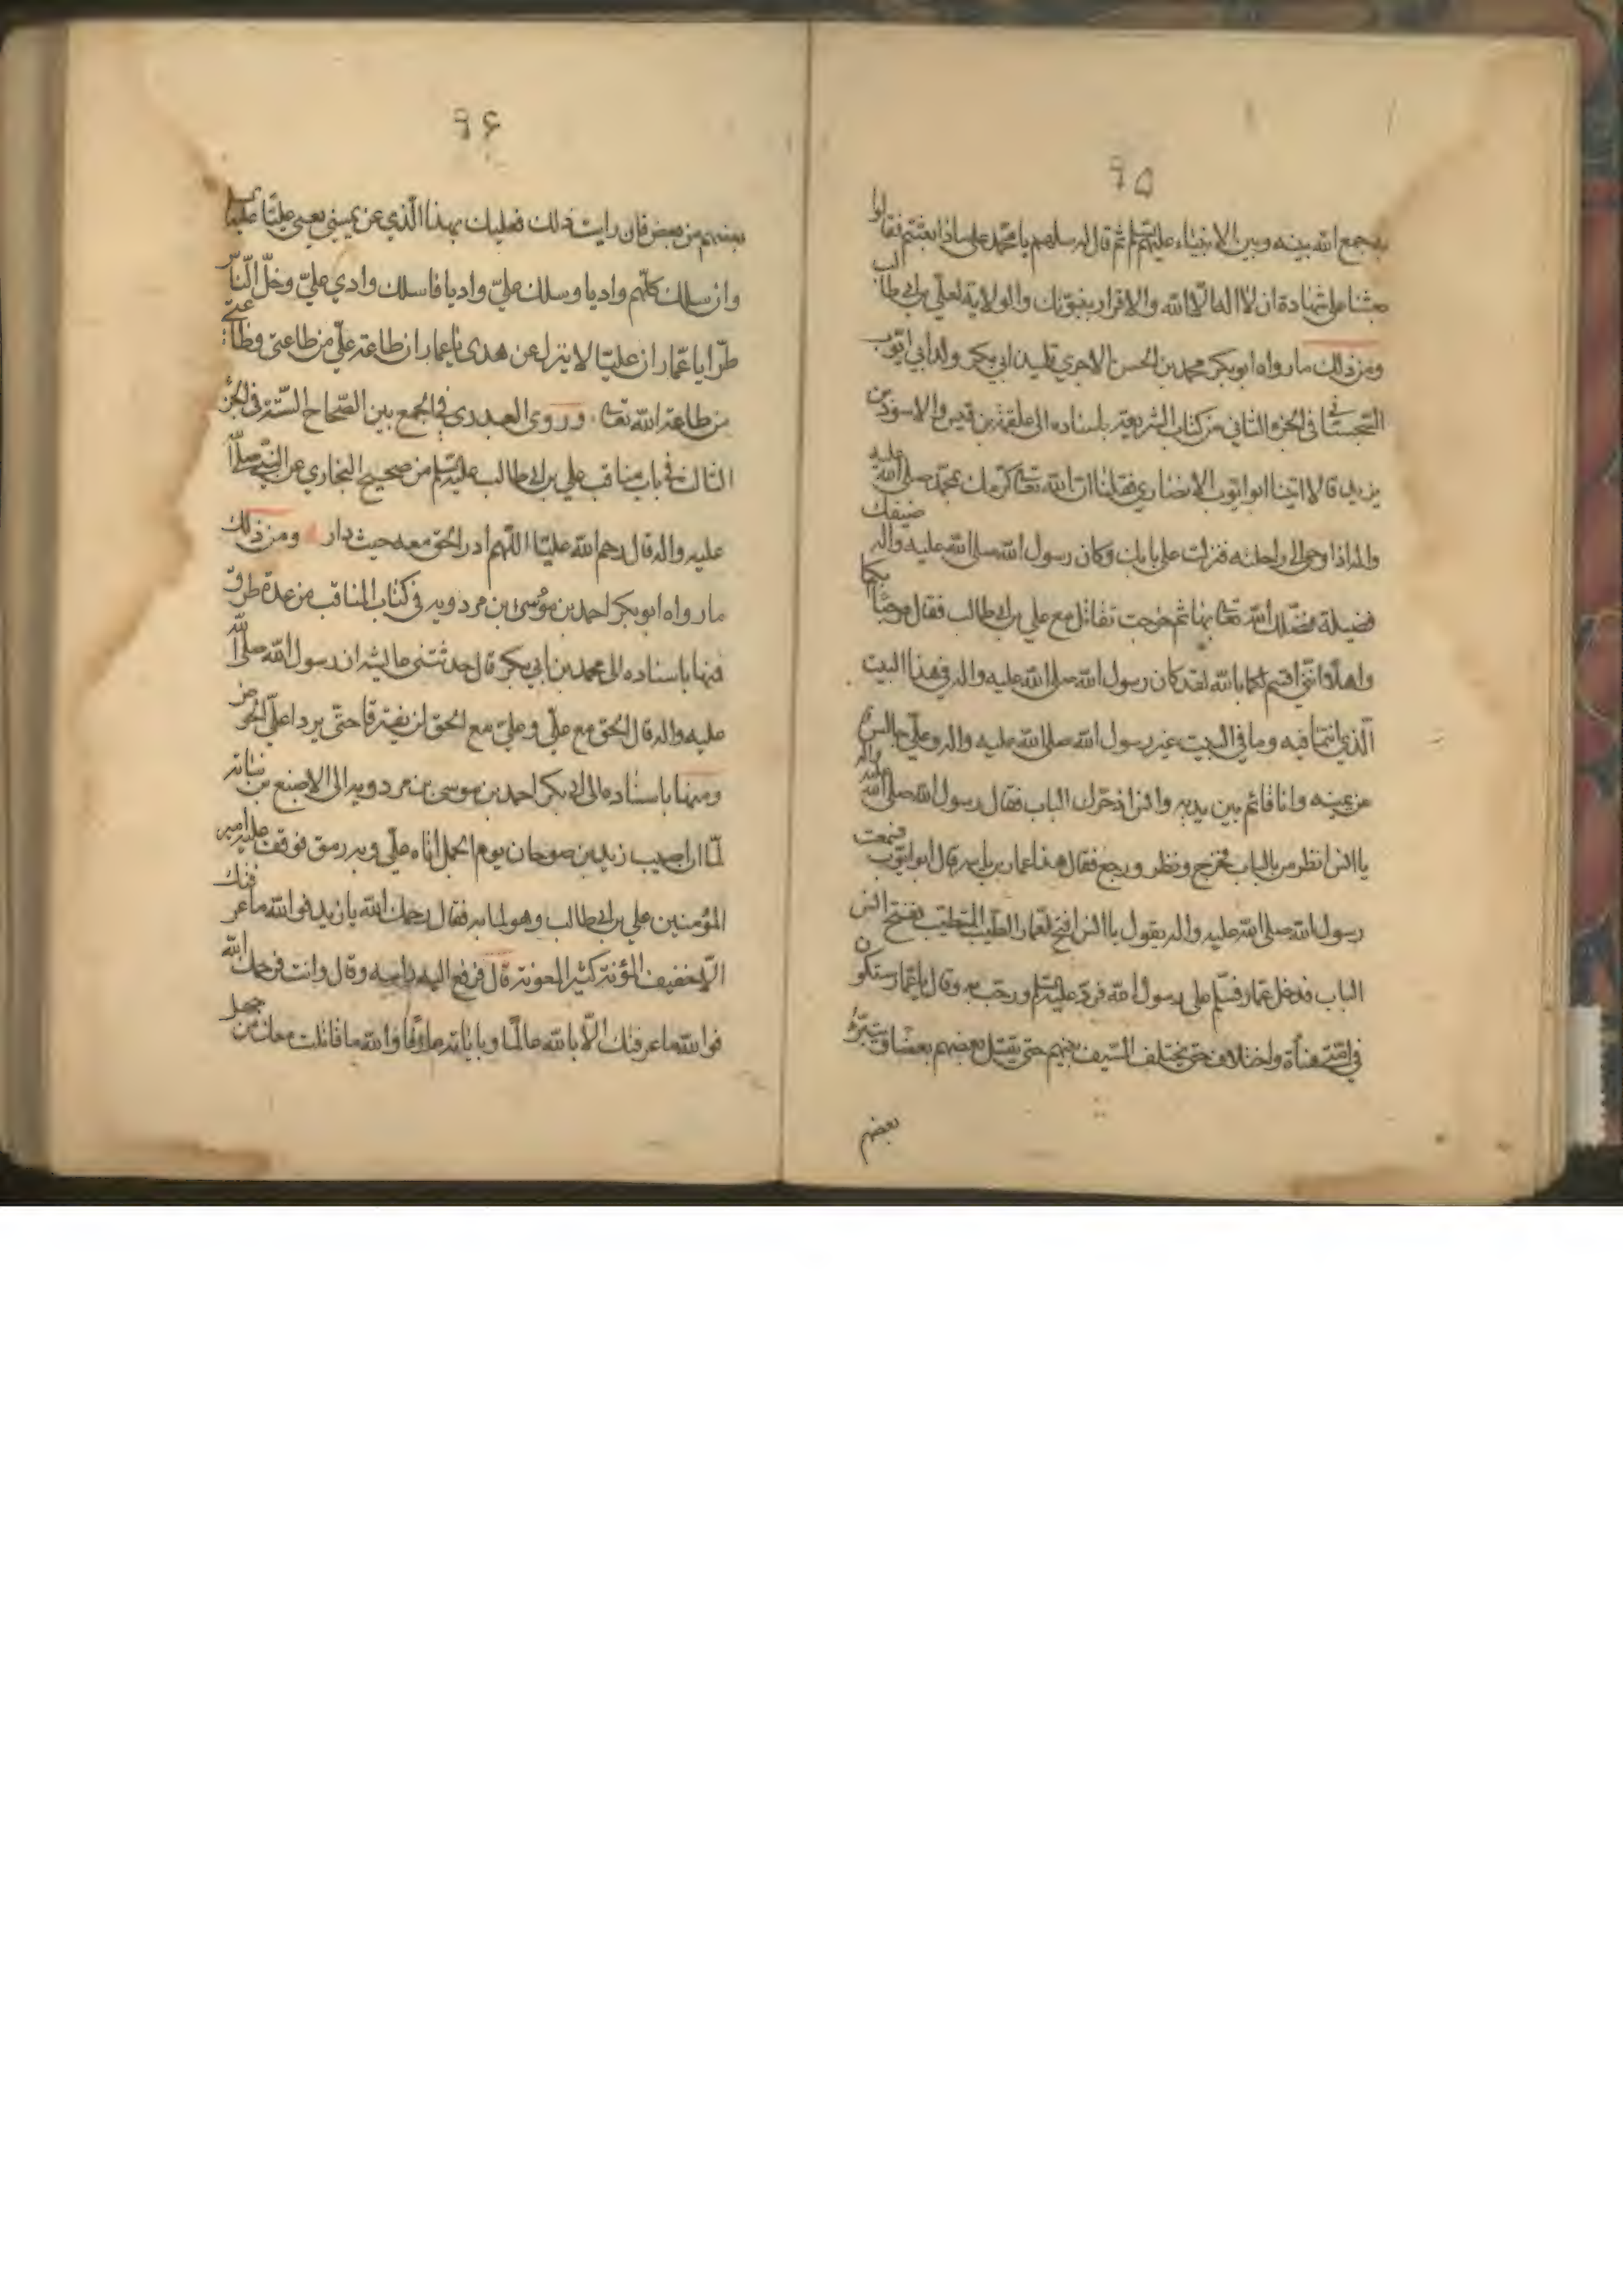 ٩٥
به جمع الله بينه وبين الانبياء عليهم السلم ثم قال له سلهم يا محمد على ماذا بعثتم فقالوا
بعثنا على شهادة ان لا اله الا الله والاقرار بنبوتك والولاية لعلي بن ابي طالب
ومن ذلك ما رواه ابو بكر محمد بن الحسن الاجري تلميذ ابي بكر ولد ابي ايوب
السجستاني في الجزء الثاني من كتاب الشريعة باسناده الى علقمة بن قيس والاسود بن
يزيد قالا اتينا ابو ايوب الانصاري فقلنا ان الله تعالى اكرمك بمحمد صلى الله عليه
واله اذ اوحى الى راحلته فنزلت على بابك وكان رسول الله صلى الله عليه واله ضيفك
فضيلة فضلك الله تعالى بها ثم خرجت تقاتل مع علي بن ابي طالب فقال مرحبا بكما
واهلا انني اقسم لكما بالله لقد كان رسول الله صلى الله عليه واله في هذا البيت
الذي انتما فيه وما في البيت غير رسول الله صلى الله عليه واله وعلي جالس
عن يمينه وانا قائم بين يديه وانس اذ حرك الباب فقال رسول الله صلى الله عليه واله
يا انس انظر من بالباب فخرج ونظر ورجع فقال هذا عمار بن ياسر قال ابو ايوب فسمعت
رسول الله صلى الله عليه واله يقول يا انس افتح لعمار الطيب المطيب ففتح انس
الباب فدخل عمار فسلم على رسول الله فرد عليه السلم ورحب به وقال يا عمار ستكون
في امتي هناة واختلاف حتى يختلف السيف بينهم حتى يقتل بعضهم بعضا ويتبرء
بعضهم
٩٦
بعضهم من بعض فان رايت ذلك فعليك بهذا الذي عن يميني يعني عليا عليه السلم
وان سلك كلهم واديا وسلك علي واديا فاسلك وادي علي وخل الناس
طرا يا عمار ان عليا لا يزل عن هدى يا عمار ان طاعة علي من طاعتي وطاعتي
من طاعة الله تعالى. وروى العبدري في الجمع بين الصحاح الستة في الجزء
الثالث في باب مناقب علي بن ابي طالب عليه السلم من صحيح البخاري عن النبي صلى الله
عليه واله قال رحم الله عليا اللهم ادر الحق معه حيث دار ومن ذلك
ما رواه ابو بكر احمد بن موسى بن مردويه في كتاب المناقب من عدة طرق
فمنها باسناده الى محمد بن ابي بكر قال حدثتني عايشه ان رسول الله صلى الله
عليه واله قال الحق مع علي وعلي مع الحق لن يفترقا حتى يردا على الحوض
ومنها باسناده الى ابي بكر احمد بن موسى بن مردويه الى الاصبغ بن نباته
لما ان اصيب زيد بن صوحان يوم الجمل اتاه علي وبه رمق فوقف عليه امير
المؤمنين علي بن ابي طالب وهو لما به فقال رحمك الله يا زيد فوالله ما عرفتك
الا خفيف المؤنة كثير المعونة قال فرفع اليه راسه وقال وانت فرحمك الله
فوالله ما عرفتك الا بالله عالما وباياته عارفا والله ما قاتلت معك من جهل